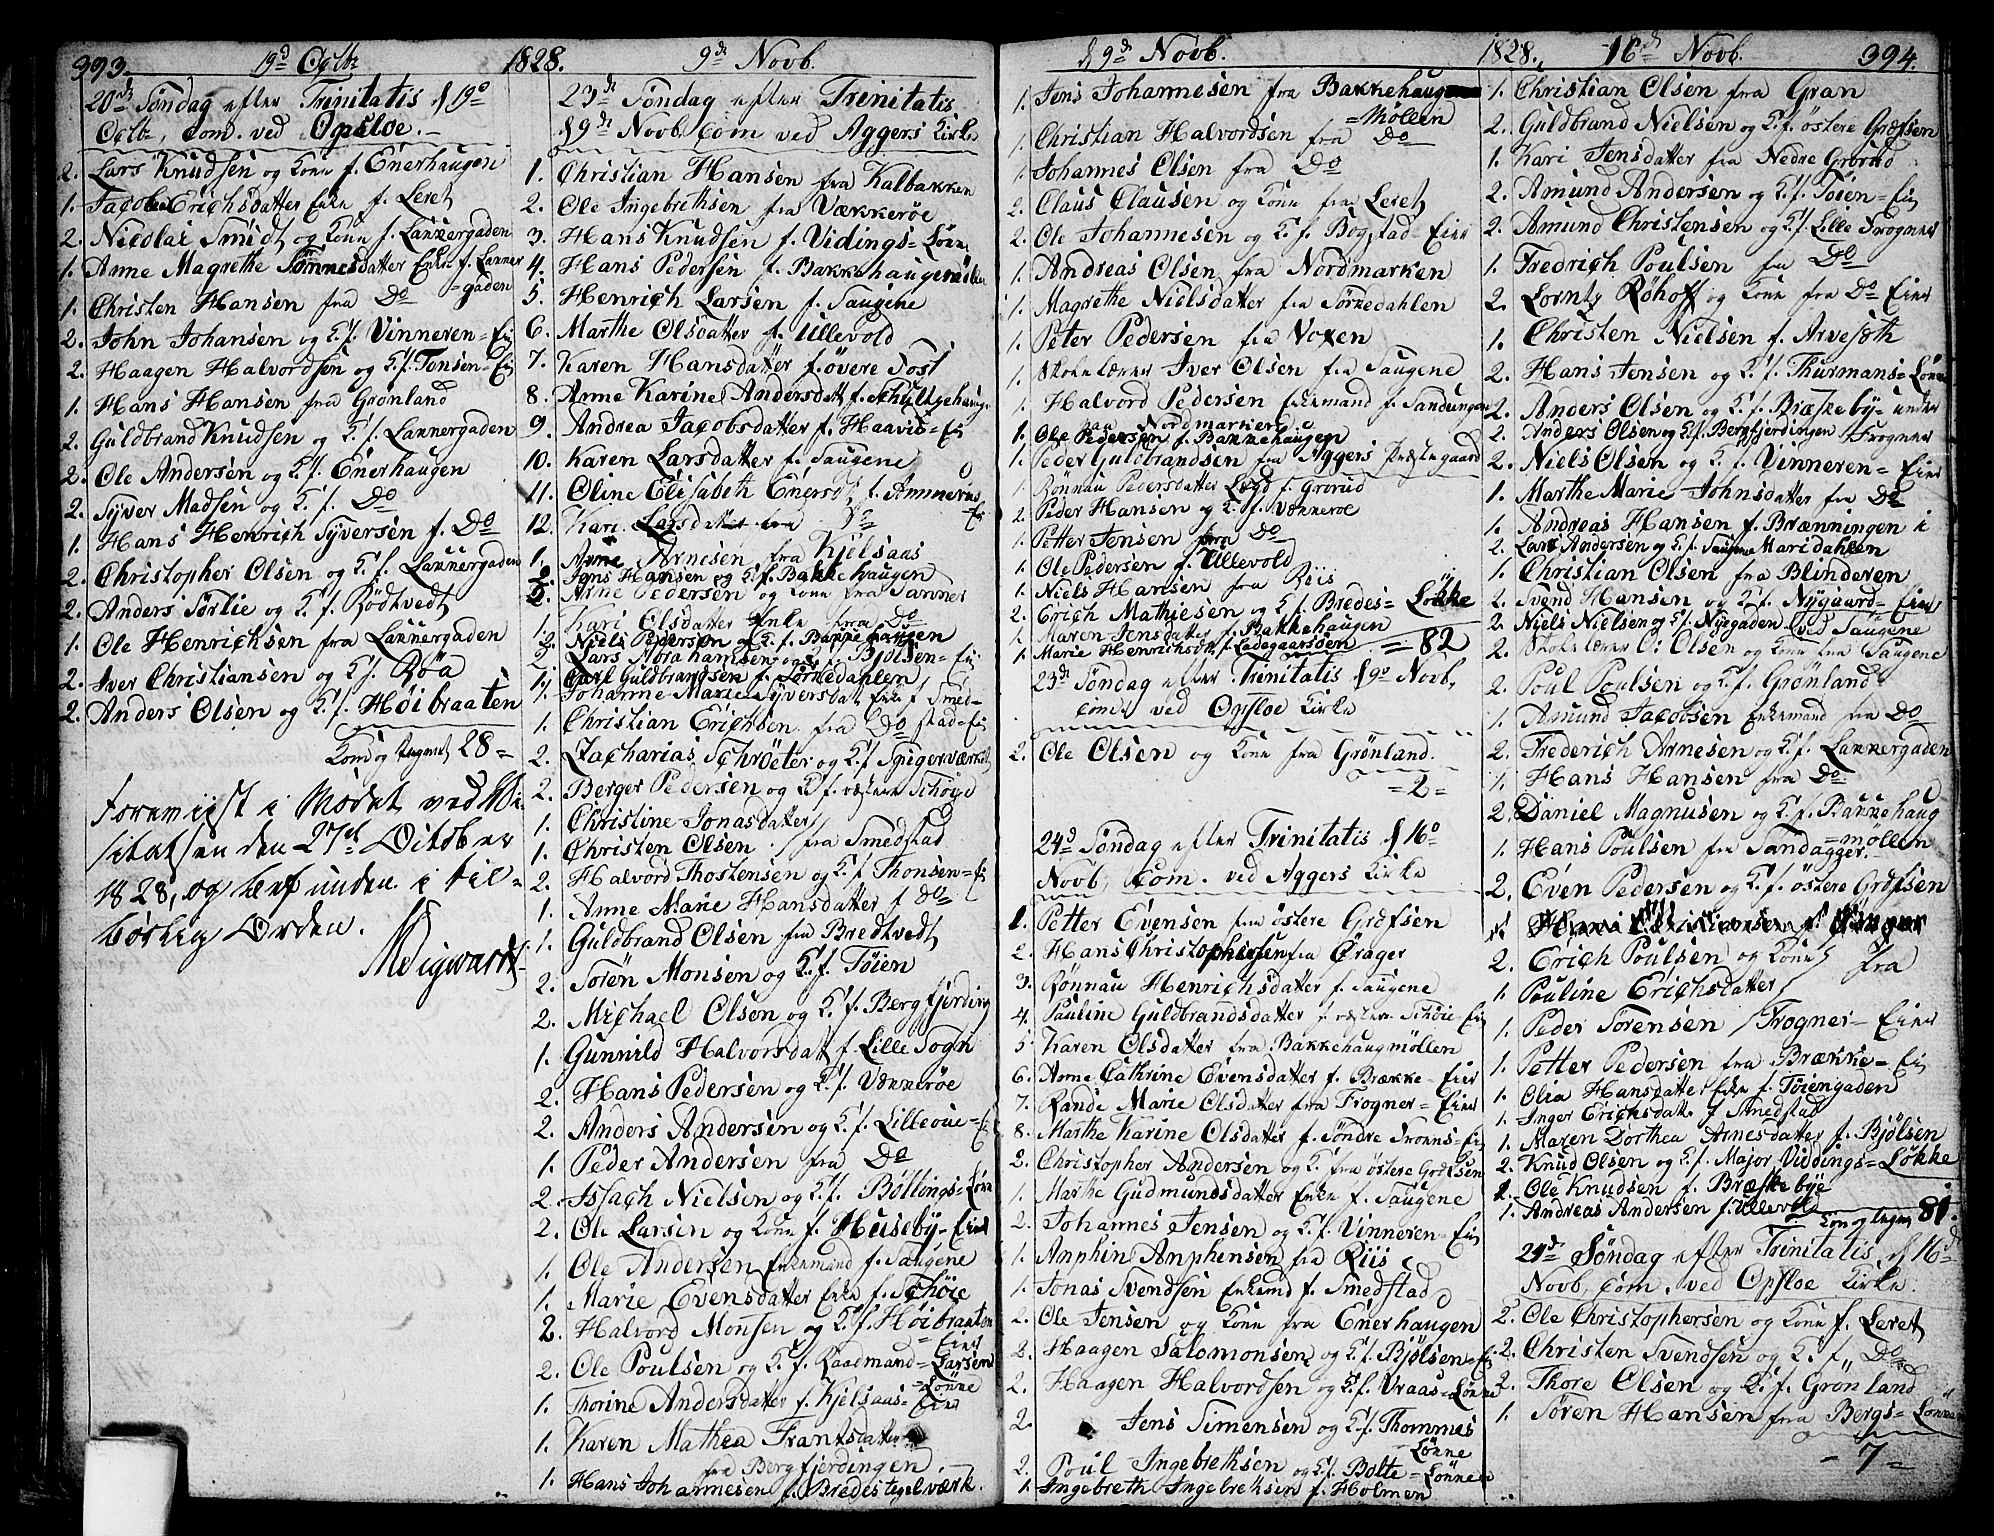 393. 19d Octbr 1828. 9de Novb.
20de Søndag efter Trinitatis d 19o
Octbr, Com. ved Opsloe.
2. Lars Knudsen og Kone f. Enerhaugen
1. Erichsdatter Enke f. Leret
2. Nicolai Smidt og Kone f. Lakkergaden
1. Anne Magrethe Tønnesdatter Enke f. Lakker
=gaden
1. Christen Hansen fra Do
2. John Johansen og K. f. Vinneren=Eie
2. Haagen Halvordsen og K. f. Tonsen=Eie
1. Hans Hansen fra Grønland
2. Guldbrand Knudsen og K. f. Lakkergaden
2. Ole Andersen og K. f. Enerhaugen
2. Syver Madsen og K. f. Do
1. Hans Henrich Syversen f. Do
2. Christopher Olsen og K. f. Lakkergaden
2. Anders Sørlie og K. f. Rödtvedt
1. Ole Henrichsen fra Lakkergaden
2. Iver Christiansen og K. f. Röa
2. Anders Olsen og K. f. Høibraaten
28=
Foreviist i Mödet ved Vi
sitatsen den 27de Octob er
1828, og befunden i til=
börlig Orden.
23de Søndag efter Trinitatis
d 9de Novb. Com ved Aggers Kirke
1. Christian Hansen fra Kalbakken
2. Ole Ingebrethsen fra Vækkerøe
3. Hans Knudsen f. Vidings=Løkke
4. Hans Pedersen f. Bakkehaugenmölen
5. Henrich Larsen f. Saugene
6. Marthe Olsdatter f. Ullevold
7. Karen Hansdatter f. øvre Fost
8. Anne Karine Andersdatt f. Schultzehaugen
9. Andrea Jacobsdatter f. Haavie=Ei
10. Karen Larsdatter f. Saugene
11. Oline Elisabeth Enersd. f. Ammerud=
Ei
12. Kari Larsdatter fra Do
1. Arne Arnesen fra Kjelsaas
2. Jens Hansen og K. f. Bakkehaugen
2. Arne Pedersen og Kone fra
1. Kari Olsdatter Enke fra Do
2. Niels Pedersen og K. f. Bakkehaugen
2. Lars Abrahamsen og K. f. Bjølsen=Eie
1. Carl Guldbrandsen f. Sørkedahlen
1. Johanne Marie Syversdat Enke f. Smed=
1. Christian Erichsen fra Do stad=Ei
2. Zacharias Schrøeter og K. f. Spigerværket
2. Berger Pedersen og K. f. vestere Schøie
1. Christine Jonasdatter
1. Christen Olsen fra Smedstad
2. Halvord Thostensen og K. f. Thonsen=Ei
1. Anne Marie Hansdatter f. Do
1. Guldbrand Olsen fra Bredtvedt
2. Sørën Monsen og K. f. Töien
2. Michael Olsen og K. f. Bergfjerding
1. Gunnild Halvorsdat f. Lille Sogn
2. Hans Pedersen og K. f. Vækkerøe
2. Anders Andersen og K. f. Lilleøie=Ei
1. Peder Andersen fra Do
2. Issach Nielsen og K. f. Böllings=Løkke
2. Ole Larsen og Kone f. Huseby=Eier
1. Ole Andersen Enkemand f. Saugene
1. Marie Evensdatter Enke f. Schöie
2. Halvord Monsen og K. f. Høibraaten
=Eier
2. Ole Poulsen og K. f. Raadmand=Larsens
=Løkke
1. Thorine Andersdatter f. Kjelsaas=Eier
1. Karen Mathea Frantsdatter
fra Bergfjerdingen
1. Hans Johannesen f. Bredes tegelværk.
d 9de Novb. 1828. 16de Novb. 394.
1. Jens Johannesen fra Bakkehaugen
=Møllen
1. Christian Halvordsen fra Do
1. Johannes Olsen fra Do
2. Claus Clausen og Kone fra Leret
2. Ole Johannesen og K. f. Bogstad=Eier
1. Andreas Olsen fra Nordmarken
1. Magrethe Nielsdatter fra Sørkedahlen
1. Peter Pedersen fra Voxen
1. Skolelærer Iver Olsen fra Saugene
1. Halvord Pedersen Enkemand f. Sandungen
paa Nordmarken
1. Ole Pedersen f. Bakkehaugen
1. Peder Guldbrandsen fra Aggers Præstegaard
1. Rønnau Pedersdatter Legd f. Grorud
2. Peder Hansen og K. f. Vækkerøe
1. Petter Jensen fra Do
1. Ole Pedersen f. Ullevold
1. Niels Hansen fra Riis
2. Erich Mathiesen og K. f. Bredes=Løkke
1. Maren Jensdatter f. Bakkehaugen
1. Marie Henrichsdr. f. Ladegaarsöen = 82
23de Søndag efter Trinitatis d 9o Novb,
com. ved Opsloe Kirke
2. Ole Olsen og Kone fra Grønland.
=2=
24de Søndag efter Trinitatis d 16o
Novb, Com. ved Aggers Kirke
1. Petter Evensen fra østere Græfsen
2. Hans Christophersen fra Krager
3. Rönnau Henrichsdatter f. Saugene
4. Pauline Guldbrandsdatter f. vestere Schöie=Ei
5. Karen Olsdatter fra Bakkehaugmöllen
6. Anne Cathrine Evensdatter f. Brække=Eier
7. Rande Marie Olsdatter fra Frogner=Eier
8. Marthe Karine Olsdatter f. Søndre =Ei
2. Christopher Andersen og K. fra østere Græfsen
1. Marthe Gudmundsdatter Enke f. Saugene
2. Johannes Jensen og K. f. Vinneren=Ei
1. Amphin Amphensen fra Riis
1. Jonas Svendsen Enkemd f. Smedstad
2. Ole Jensen og Kone fra Enerhaugen
2. Haagen Salomonsen og K. f. Bjølsen=Ei
2. Haagen Halvordsen og K. f. Vraas=Løkke
2. Jens Simensen og K. f. Thommes
=Løkke
2. Poul Ingebrethsen og K. f. Bolte=Løkken
1. Ingebreth Ingebrethsen f. Holmen
1. Christian Olsen fra Gran
2. Guldbrand Nielsen og K. f. østere Græfsen
1. Kari Jensdatter fra Nedre Grorud
2. Amund Andersen og K. f. Töien=Ei
2. Amund Christensen og K. f. Lille Frogner
1. Fredrich Poulsen fra Do
2. Lornty Røhoff og Kone fra Do Eier
1. Christen Nielsen f. Arvesæth
2. Hans Jensen og K. f. Thurmans=Løkke
2. Anders Olsen og K. f. Bræskeby=under
2. Anders Olsen og K. f. Bergfjerdingen Frogner
2. Niels Olsen og K. f. Vinneren=Eier
1. Marthe Marie Johnsdatter fra Do
1. Andreas Hansen f. Brænningen i
2. Lars Andersen og K. f. Saugene Maridahlen
1. Christian Olsen fra Blinderen
2. Svend Hansen og K. f. Nygaard=Eier
2. Niels Nielsen og K. f. Nyegaden ved Saugene
2. Skolelærer O: Olsen og Kone fra Saugene
2. Poul Poulsen og K. f. Grønland
1. Amund Jacobsen Enkemand fra Do
2. Frederich Arnesen og K. f. Lakkergaden
1. Hans Hansen fra Do
2. Daniel Magnusen og K. f. Bakkehaug
=möllen
1. Hans Poulsen fra Sandagger.
2. Even Pedersen og K. f. østere Græfsen
2. Erich Poulsen og Kone fra
1. Pouline Erichsdatter
1. Peder Sørensen Frogner=Eier
1. Petter Pedersen fra Brække=Ei
1. Olia Hansdatter Enke f. Töiengaden
1. Inger Erichsdatte f. Smedstad
1. Maren Dorthea Arnesdatter f. Bjølsen
2. Knud Olsen og K. f. Major Viddings=Løkke
1. Ole Knudsen f. Bræskebye
1. Andreas Andersen f. Ullevold
81.
24de Søndag efter Trinitatis d 16de
Novb, com. ved Opsloe Kirke.
2. Ole Christophersen og Kone f. Leret
2. Christen Svendsen og K. f. Do
2. Thore Olsen og K. f. Grønland
1. Søren Hansen fra Bergs=Løkke
- 7 =